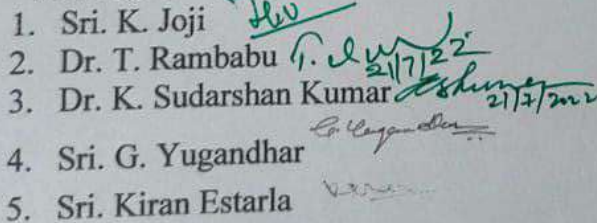 1. Sri. K. Joji
2. Dr. T. Rambabu 21/7/22
3. Dr. K. Sudarshan Kumar 21/7/2022
4. Sri. G. Yugandhar
5. Sri. Kiran Estarla